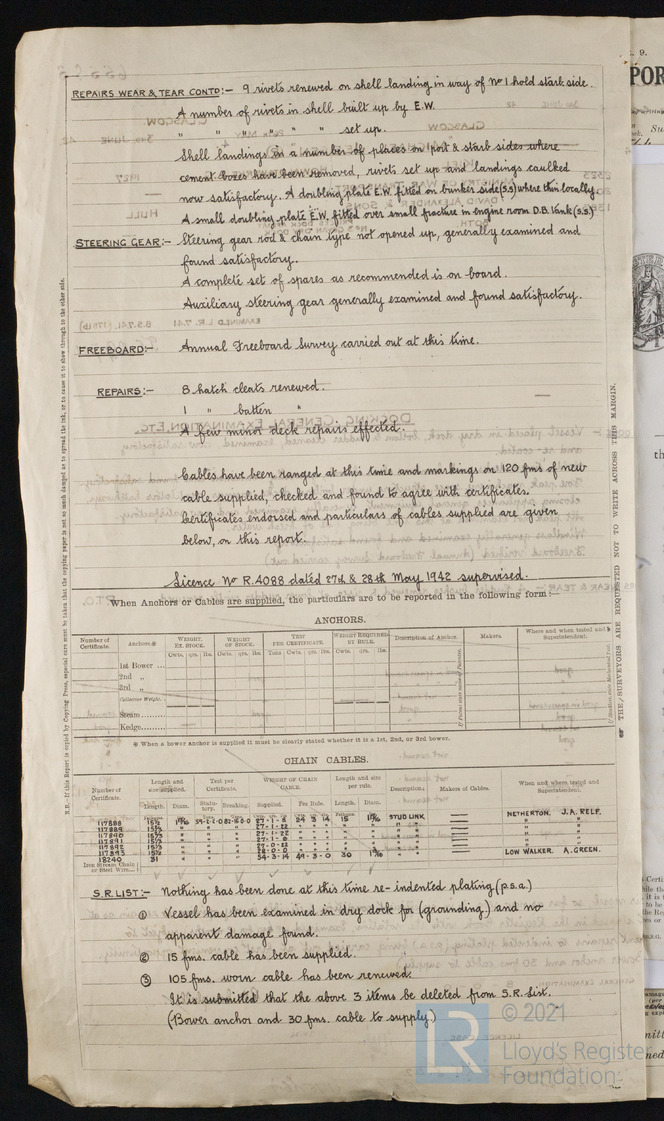 REPAIRS WEAR & TEAR CONTD:- 9 rivets renewed on shell landing in way of No 1 hold starb. side.
A number of rivets in shell built up by E.W.
" " " " " set up.
Shell landings in a number of places on port & starb sides where
cement boxes have been removed, rivets set up and landings caulked
now satisfactory. A doubling plate E.W. fitted on bunker side (S.S) where thin locally.
A small doubling plate E.W. fitted over small fracture in engine room D.B. tank (S.S)
STEERING GEAR:- Steering gear rod & chain type not opened up, generally examined and
found satisfactory.
A complete set of spares as recommended is on board.
Auxiliary steering gear generally examined and found satisfactory.
FREEBOARD:- Annual Freeboard Survey carried out at this time.
REPAIRS:- 8 hatch cleats renewed.
1 " batten "
A few minor deck repairs effected.
Cables have been ranged at this time and markings on 120 fms of new
cable supplied, checked and found to agree with certificates.
Certificates endorsed and particulars of cables supplied are given
below, on this report.
Licence No R.4088 dated 27th & 28th May 1942 supervised.
When Anchors or Cables are supplied, the particulars are to be reported in the following form:—
ANCHORS.
Number of Certificate. Anchors.* WEIGHT, EX. STOCK. WEIGHT OF STOCK. TEST PER CERTIFICATE. WEIGHT REQUIRED BY RULE. Description of Anchor. Makers. Where and when tested and Superintendent.
Cwts. qrs. lbs. Cwts. qrs. lbs. Tons Cwts. qrs. lbs. Cwts. qrs. lbs.
1st Bower ...
2nd "
3rd "
Collective Weight.
Stream
Kedge
* When a bower anchor is supplied it must be clearly stated whether it is a 1st, 2nd, or 3rd bower.
CHAIN CABLES.
Number of Certificate. Length and size supplied. Test per Certificate. WEIGHT OF CHAIN CABLE. Length and size per rule. Description. Makers of Cables. When and where tested and Superintendent.
Length. Diam. Statutory. Breaking. Supplied. Per Rule. Length. Diam.
117888 15½ 24 3 14 15 STUD LINK NETHERTON. J.A. RELF.
117889 27-1-22
117890 27-1-22
117891
117892 27-0-22
117893 28-0-0
18240 31 54-3-14 49-3-0 30 LOW WALKER. A. GREEN.
Iron Stream Chain or Steel Wire
S.R. LIST:- Nothing has been done at this time re-indented plating (p.s.a.)
① Vessel has been examined in dry dock for (grounding) and no
apparent damage found.
② 15 fms. cable has been supplied.
③ 105 fms. worn cable has been renewed.
It is submitted that the above 3 items be deleted from S.R. List.
(Bower anchor and 30 fms. cable to supply)
N.B.—If this Report is copied by Copying Press, especial care must be taken that the copying paper is not so much damped as to spread the ink, or to cause it to show through to the other side.
THE SURVEYORS ARE REQUESTED NOT TO WRITE ACROSS THIS MARGIN.
© 2021
LR
Lloyd's Register
Foundation